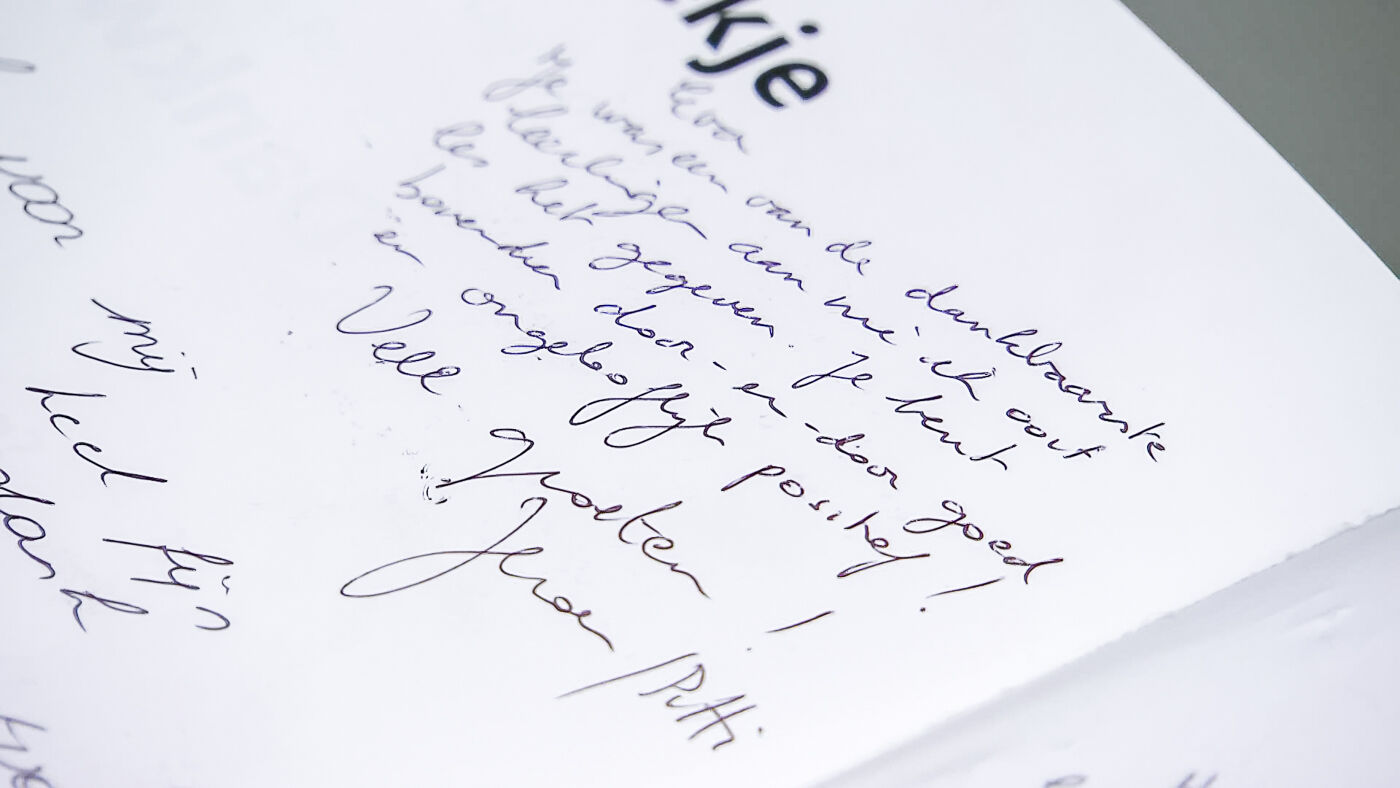 kje
Je was een van de dankbaarste
leerlingen aan wie ik ooit
les heb gegeven. Je bent
bovendien door-en-door goed
en ongelooflijk positief!
Veel
groeten!
Jeroen / Putti
voor
mij
heel fijn
dank